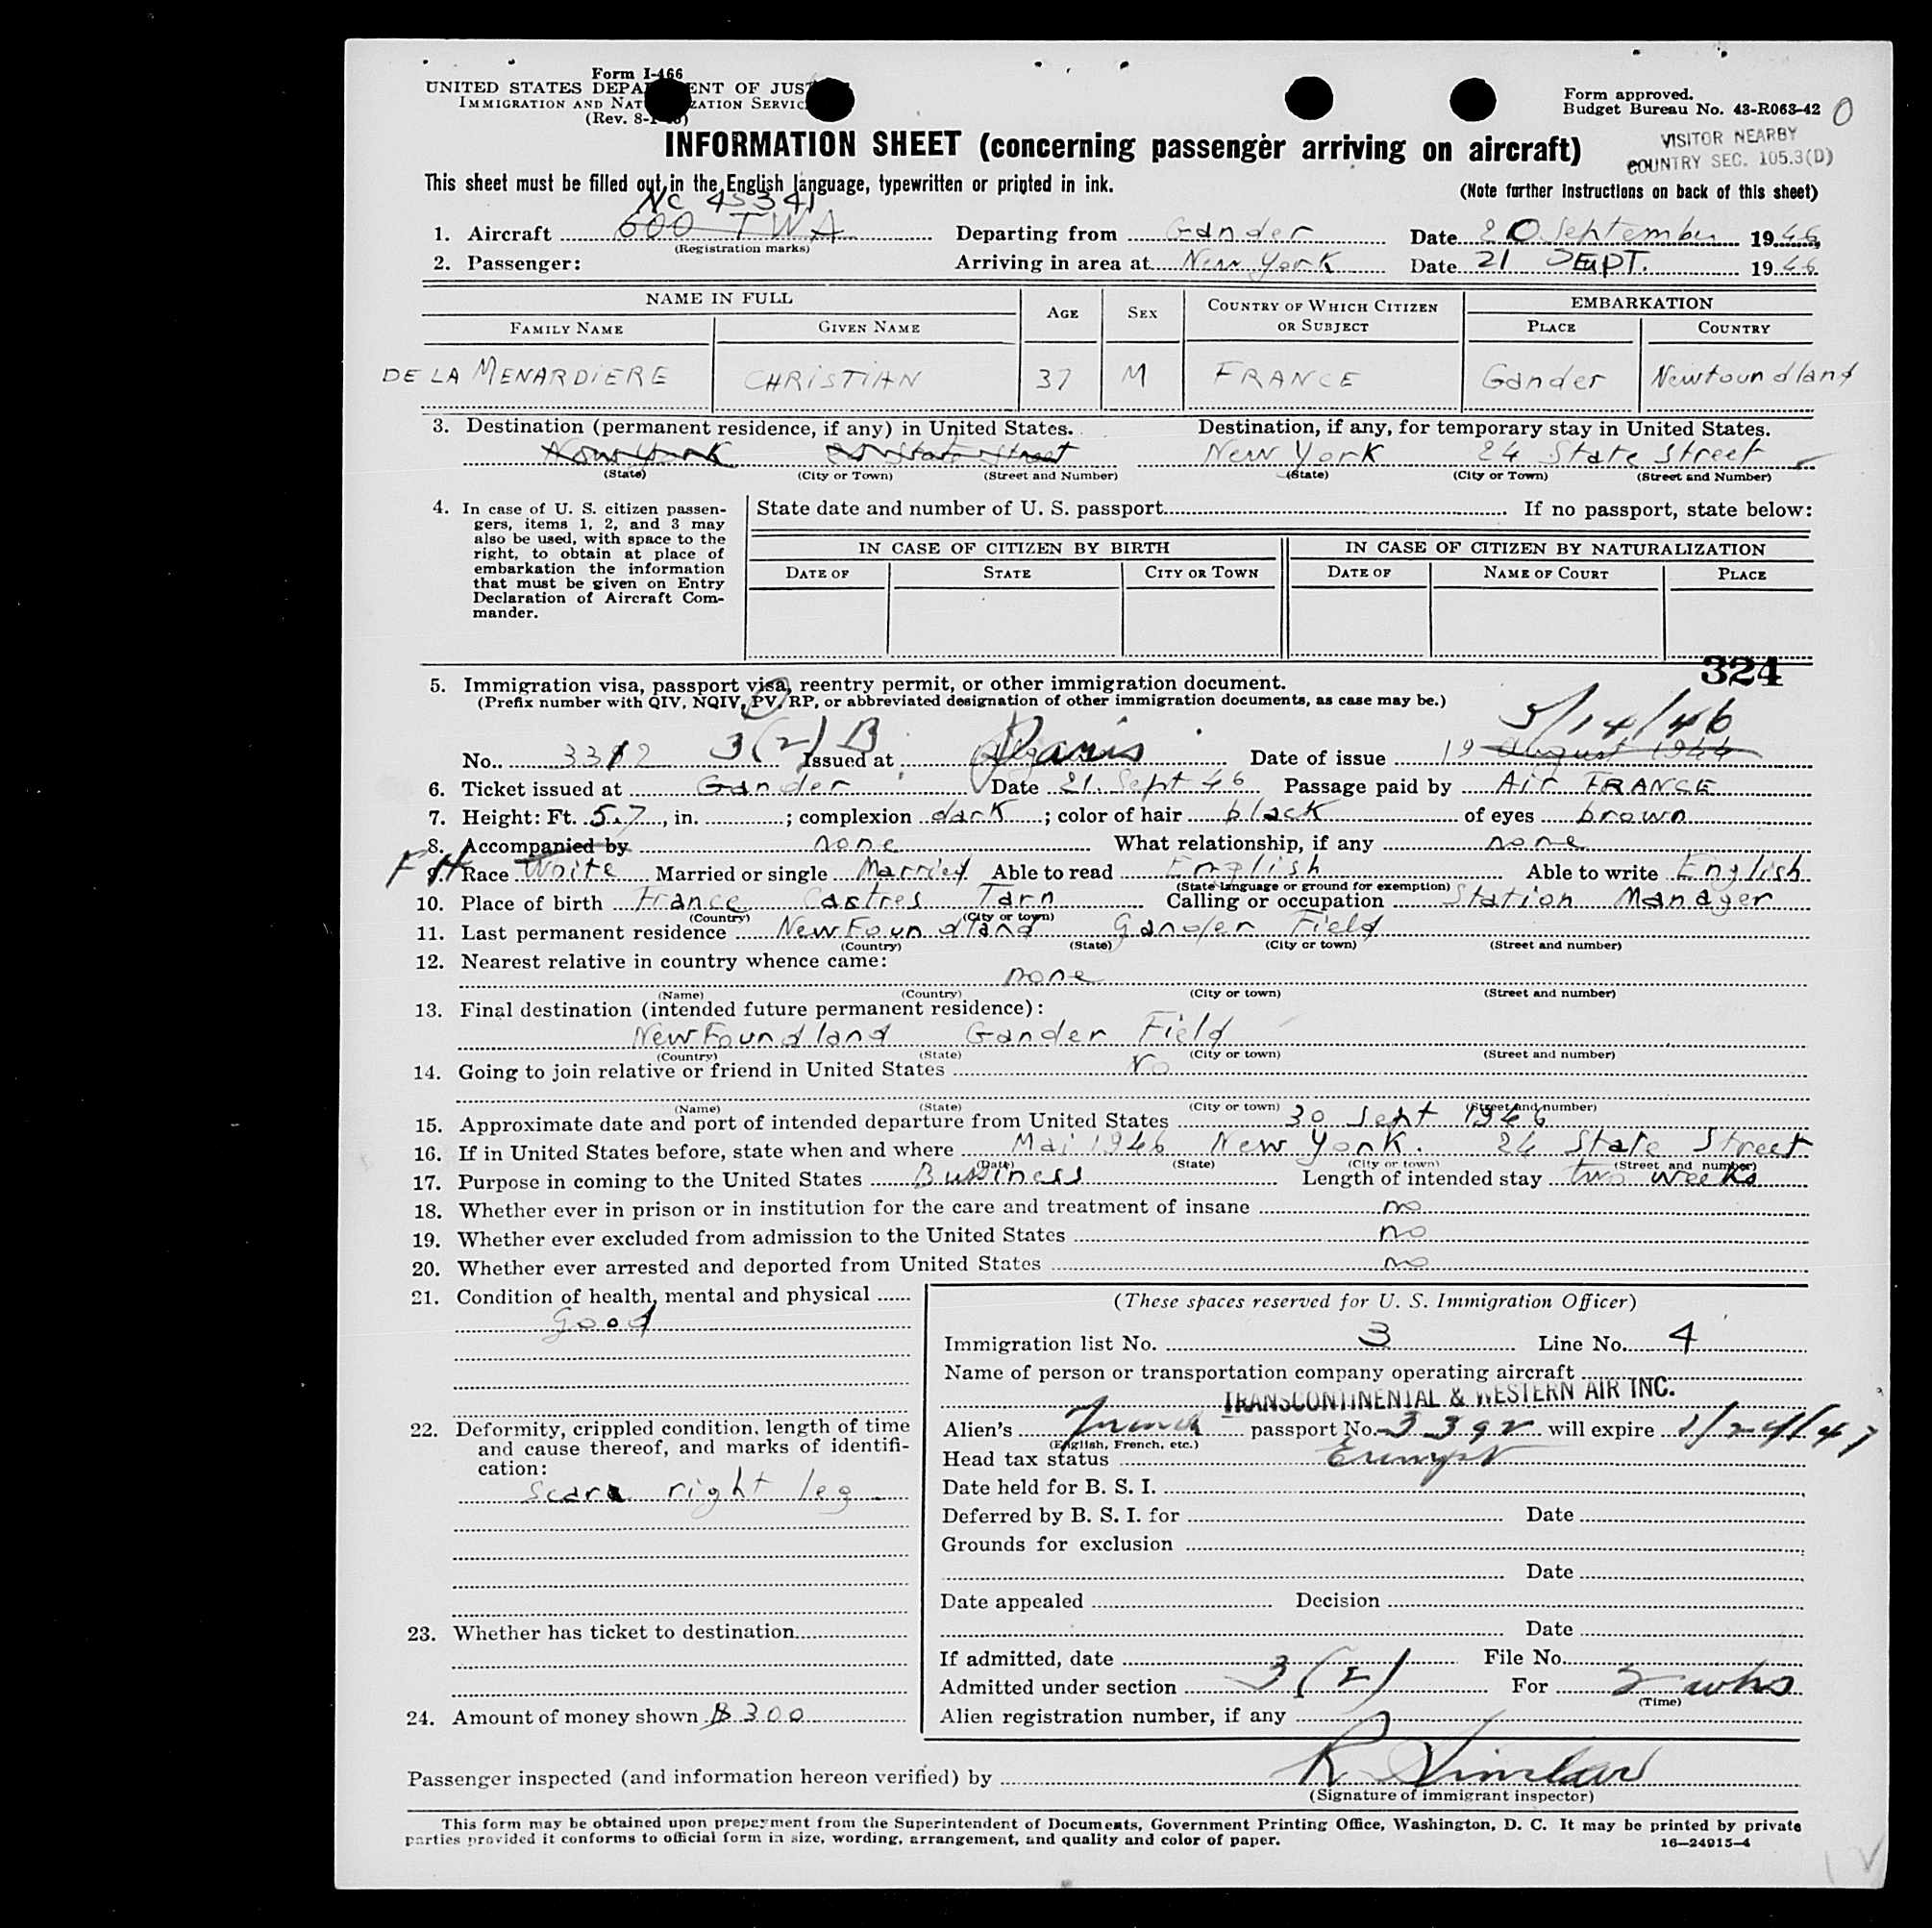 Form I-466
UNITED STATES DEPA ENT OF JUS
IMMIGRATION AND NAT ZATION SERVIC
(Rev. 8- )
Form approved.
Budget Bureau No. 43-R063-42 0
VISITOR NEARBY
COUNTRY SEC. 105.3(D)
INFORMATION SHEET (concerning passenger arriving on aircraft)
This sheet must be filled out in the English language, typewritten or printed in ink. (Note further instructions on back of this sheet)
NC 45341
1. Aircraft 600 TWA Departing from Gander Date 20 September 1946
(Registration marks)
2. Passenger: Arriving in area at New York Date 21 SEPT. 1946
NAME IN FULL AGE SEX COUNTRY OF WHICH CITIZEN OR SUBJECT EMBARKATION
FAMILY NAME GIVEN NAME PLACE COUNTRY
DE LA MENARDIERE CHRISTIAN 37 M FRANCE Gander Newfoundland
3. Destination (permanent residence, if any) in United States. Destination, if any, for temporary stay in United States.
New York 24 State Street New York 24 State Street
(State) (City or Town) (Street and Number) (State) (City or Town) (Street and Number)
4. In case of U. S. citizen passen-
gers, items 1, 2, and 3 may
also be used, with space to the
right, to obtain at place of
embarkation the information
that must be given on Entry
Declaration of Aircraft Com-
mander.
State date and number of U. S. passport If no passport, state below:
IN CASE OF CITIZEN BY BIRTH IN CASE OF CITIZEN BY NATURALIZATION
DATE OF STATE CITY OR TOWN DATE OF NAME OF COURT PLACE
324
5. Immigration visa, passport visa, reentry permit, or other immigration document.
(Prefix number with QIV, NQIV, PV, RP, or abbreviated designation of other immigration documents, as case may be.)
5/14/46
No. 3312 3(2) B Issued at Paris Date of issue 19 August 1944
6. Ticket issued at Gander Date 21. Sept 46 Passage paid by Air FRANCE
7. Height: Ft. 5.7, in. ; complexion dark ; color of hair black of eyes brown
8. Accompanied by none What relationship, if any none
FH
9. Race White Married or single Married Able to read English Able to write English
(State language or ground for exemption)
10. Place of birth France Castres Tarn Calling or occupation Station Manager
(Country) (City or town)
11. Last permanent residence NewFoundland Gander Field
(Country) (State) (City or town) (Street and number)
12. Nearest relative in country whence came:
none
(Name) (Country) (City or town) (Street and number)
13. Final destination (intended future permanent residence):
NewFoundland Gander Field
(Country) (State) (City or town) (Street and number)
14. Going to join relative or friend in United States No
(Name) (State) (City or town) (Street and number)
15. Approximate date and port of intended departure from United States 30 Sept 1946
16. If in United States before, state when and where Mai 1946 New York. 24 State Street
(Date) (State) (City or town) (Street and number)
17. Purpose in coming to the United States Business Length of intended stay two weeks
18. Whether ever in prison or in institution for the care and treatment of insane no
19. Whether ever excluded from admission to the United States no
20. Whether ever arrested and deported from United States no
21. Condition of health, mental and physical
good
22. Deformity, crippled condition, length of time
and cause thereof, and marks of identifi-
cation:
Scar right leg
23. Whether has ticket to destination
24. Amount of money shown $ 300
(These spaces reserved for U. S. Immigration Officer)
Immigration list No. 3 Line No. 4
Name of person or transportation company operating aircraft
TRANSCONTINENTAL & WESTERN AIR INC.
Alien's French passport No. 3392 will expire 1/24/47
(English, French, etc.)
Head tax status Exempt
Date held for B. S. I.
Deferred by B. S. I. for Date
Grounds for exclusion
Date
Date appealed Decision
Date
If admitted, date File No.
Admitted under section 3(2) For 2 wks
(Time)
Alien registration number, if any
Passenger inspected (and information hereon verified) by R Sinclair
(Signature of immigrant inspector)
This form may be obtained upon prepayment from the Superintendent of Documents, Government Printing Office, Washington, D. C. It may be printed by private
parties provided it conforms to official form in size, wording, arrangement, and quality and color of paper. 16—24915-4